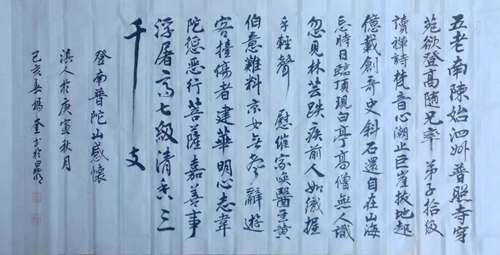 五老南陳始泗州 普照寺穿
苑欲登高隨兄率 弟子拾級
讀禪詩梵音心湖止巨崖拔地起
億載創奇史斜石還自在山海
忘時日臨頂現白亭高僧無人識
忽見林芸跌疾前人如織握
手輕聲 慰催家喚醫重黃
伯意難料京女
客撞傷者建華明心志韋
陀懲惡行菩薩嘉善事
浮屠高七級清香三
千 支
登南普陀山感懷
滇人於庚寅秋月
己亥